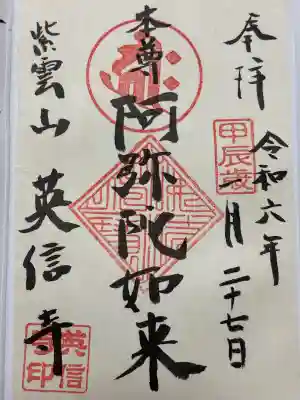 奉拝
令和六年
甲辰歳
一月二十七日
本尊
阿弥陀如来
紫雲山 英信寺
英信寺印